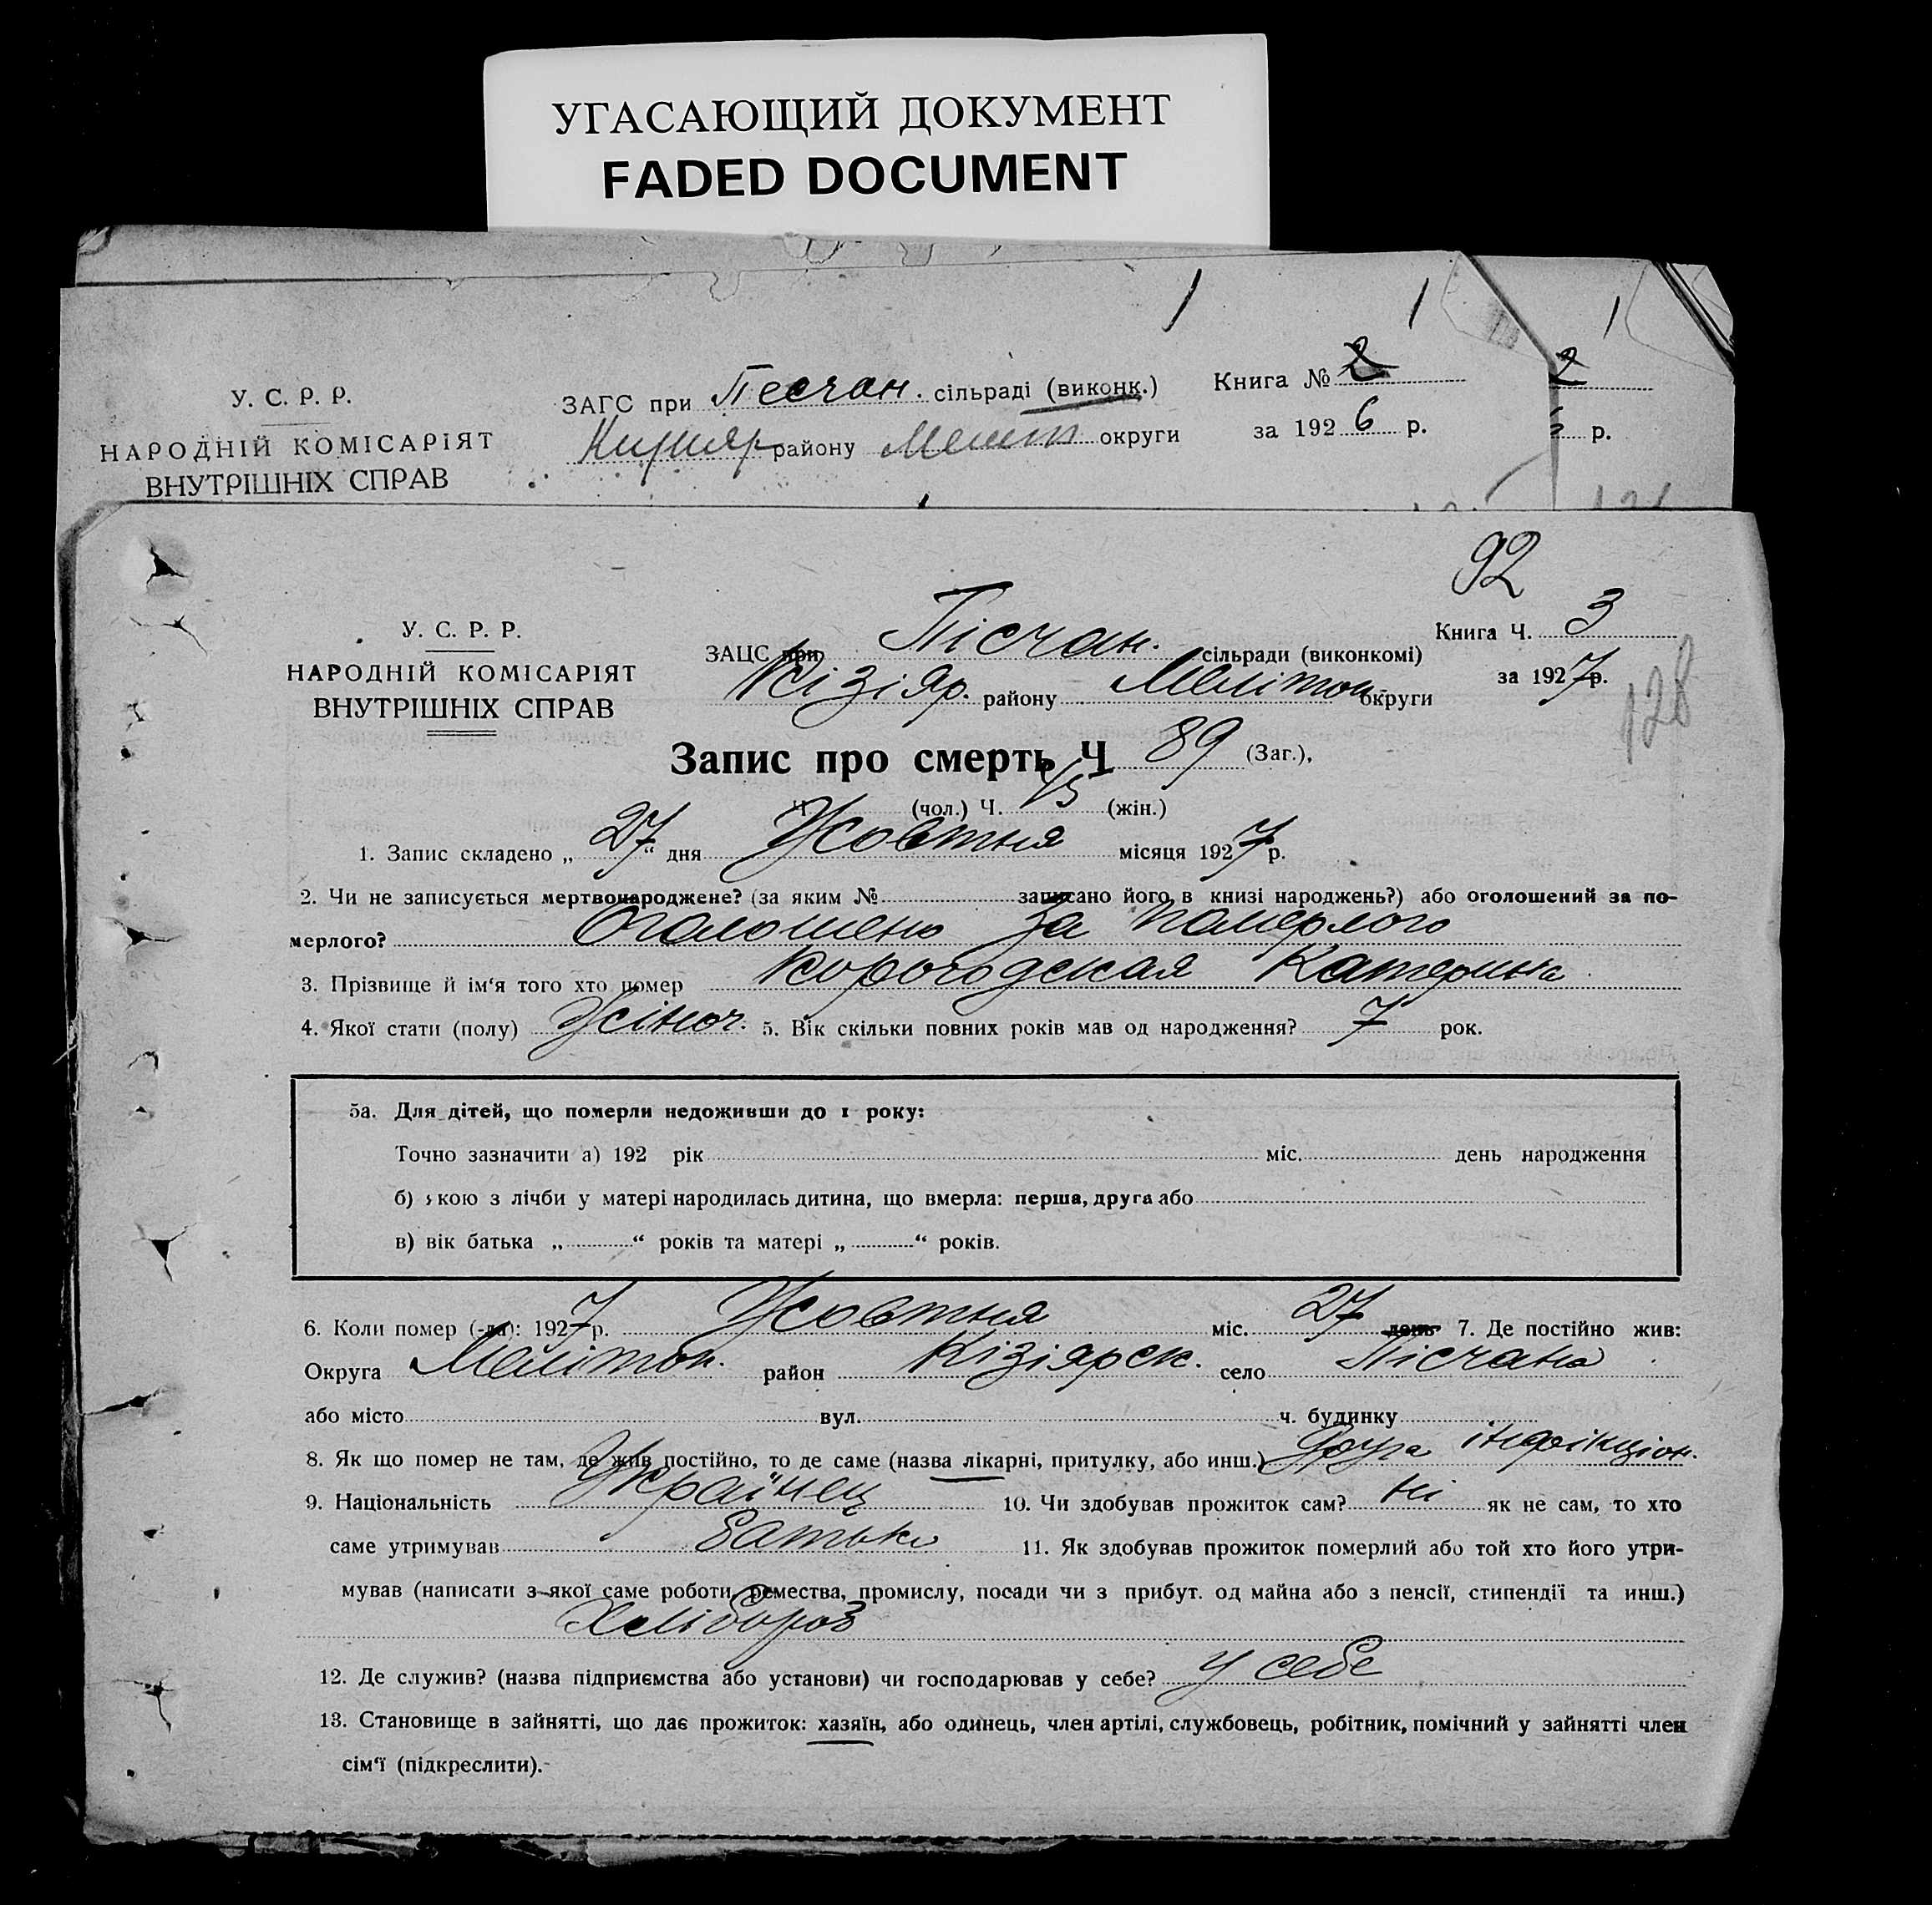 УГАСАЮЩИЙ ДОКУМЕНТ
FADED DOCUMENT
У. С. Р. Р.
НАРОДНІЙ КОМІСАРІЯТ
ВНУТРІШНІХ СПРАВ
ЗАГС при Песчан. сільраді (виконк.)
району Мелит округи
Книга № 2
за 1926 р.
2
р.
92
128
У. С. Р. Р.
НАРОДНІЙ КОМІСАРІЯТ
ВНУТРІШНІХ СПРАВ
ЗАЦС при Пісчан. сільради (виконкомі)
Кізіяр. району Мелітоп. округи
Книга Ч. 3
за 1927 р.
Запис про смерть Ч 89 (Заг.),
Ч. (чол.) Ч. 45 (жін.)
1. Запис складено „27“ дня Жовтня місяця 1927 р.
2. Чи не записується мертвонароджене? (за яким № записано його в книзі народжень?) або оголошений за по-
мерлого? Оголошено за померлого
3. Прізвище й ім'я того хто помер Корогодская Катерина
4. Якої стати (полу) Жіноч. 5. Вік скільки повних років мав од народження? 7 рок.
5а. Для дітей, що померли недоживши до 1 року:
Точно зазначити а) 192 рік міс. день народження
б) якою з лічби у матері народилась дитина, що вмерла: перша, друга або
в) вік батька „ “ років та матері „ “ років.
6. Коли помер (-ла): 1927 р. Жовтня міс. 27 день 7. Де постійно жив:
Округа Мелітоп. район Кізіярск. село Пісчана
або місто вул. ч. будинку
8. Як що помер не там, де жив постійно, то де саме (назва лікарні, притулку, або инш.)
9. Національність Українец 10. Чи здобував прожиток сам? ні як не сам, то хто
саме утримував батько 11. Як здобував прожиток померлий або той хто його утри-
мував (написати з якої саме роботи, ремества, промислу, посади чи з прибут. од майна або з пенсії, стипендії та инш.)
Хлібороб
12. Де служив? (назва підприємства або установи) чи господарював у себе? у себе
13. Становище в зайнятті, що дає прожиток: хазяїн, або одинець, член артілі, службовець, робітник, помічний у зайнятті член
сім'ї (підкреслити).